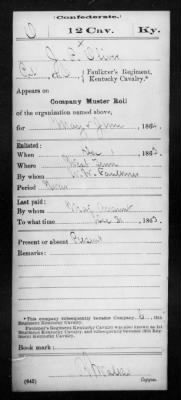 (Confederate.)
O 12 Cav. Ky.
J. F. Oliver
Co. , Faulkner's Regiment,
Kentucky Cavalry.*
Appears on
Company Muster Roll
of the organization named above,
for May & June, 186
Enlisted:
When Dec 1, 1863
Where West Tenn
By whom W. W. Faulkner
Period
Last paid:
By whom Maj.
To what time Dec 31, 1863
Present or absent Present
Remarks:
*This company subsequently became Company , this
Regiment Kentucky Cavalry.
Faulkner's Regiment Kentucky Cavalry was also known as 1st
Regiment Kentucky Cavalry, and subsequently became 12th Regiment Kentucky Cavalry.
Book mark:
(642) Copyist.